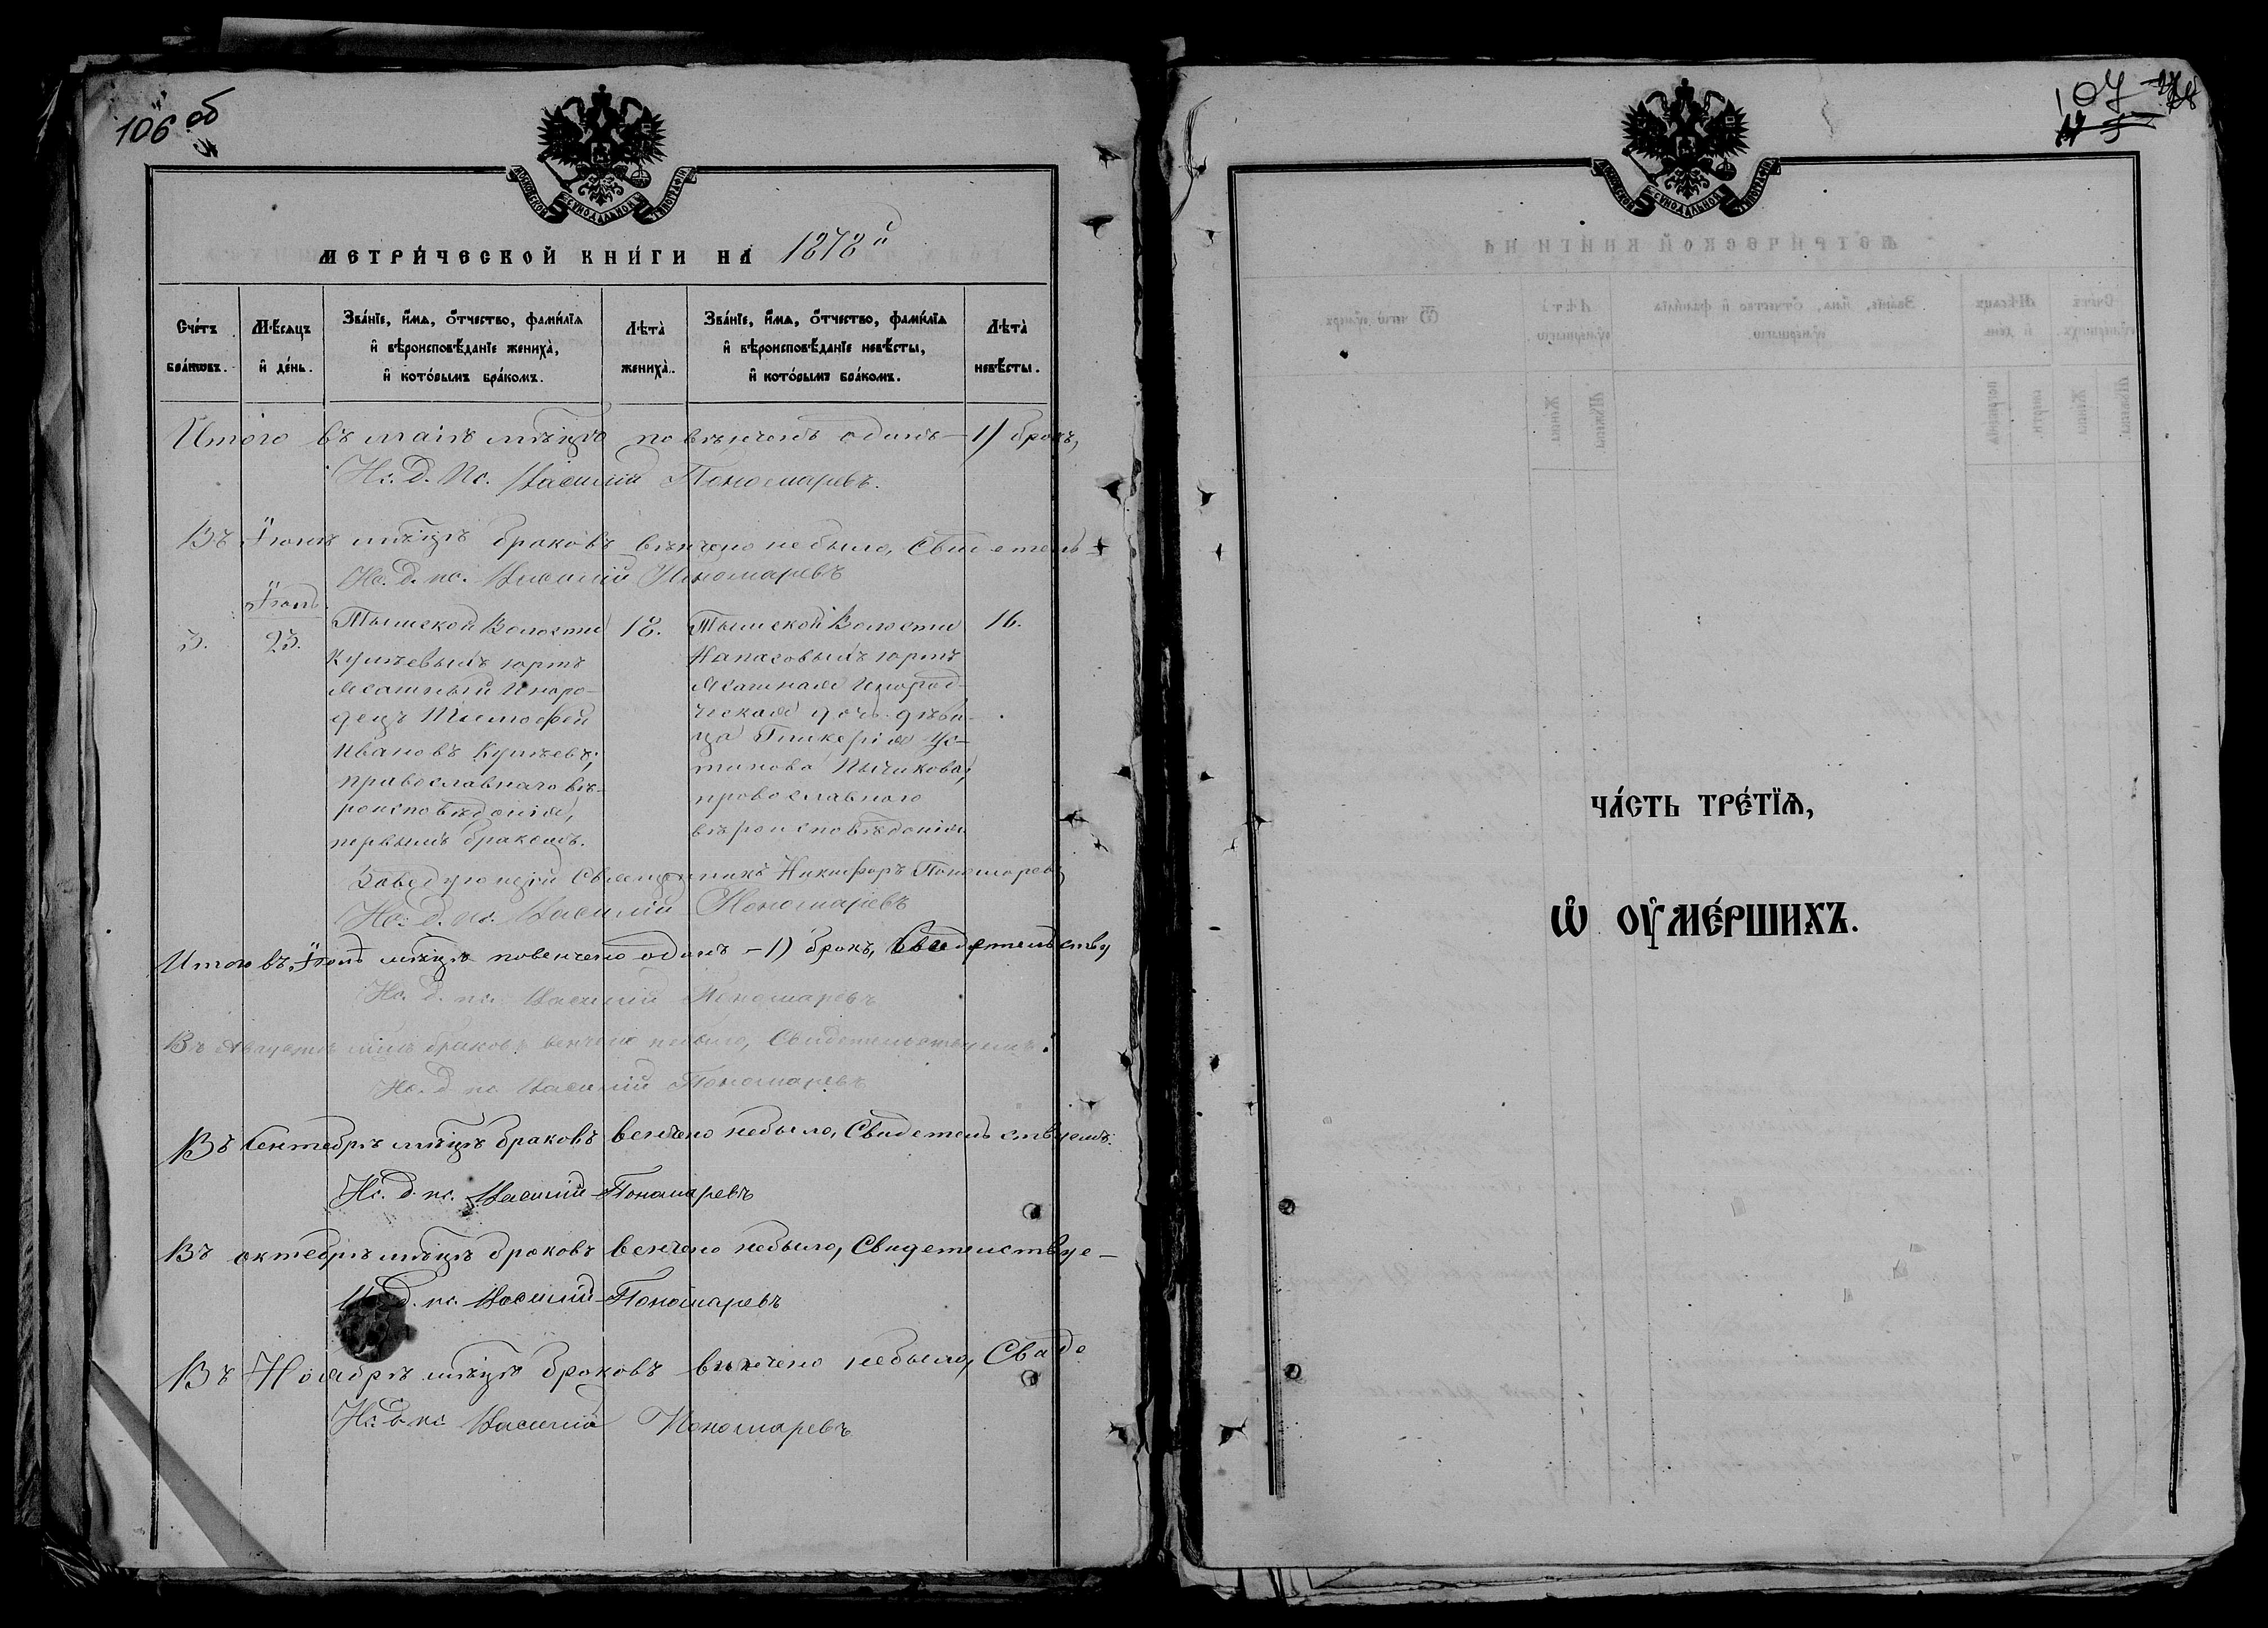 106 об
МОСКОВСКОЙ СѴНОДАЛЬНОЙ ТИПОГРАФІИ
МЕТРИ́ЧЕСКОЙ КНИ́ГИ НА 1878й
Сче́тъ бра́кѡвъ.
Мѣ́сяцъ и҆ де́нь.
Зва́нїе, и҆́мѧ, ѻ҆́тчество, фами́лїѧ
и҆ вѣроисповѣ́данїе жениха̀,
и҆ кото́рымъ бра́комъ.
Лѣта̀ жениха̀.
Зва́нїе, и҆́мѧ, ѻ҆́тчество, фами́лїѧ
и҆ вѣроисповѣ́данїе невѣ́сты,
и҆ кото́рымъ бра́комъ.
Лѣта̀ невѣ́сты.
Итого въ маіѣ мѣсцѣ повѣнчонъ одинъ - 1) бракъ,
Ис. д. Пс. Василій Пономаревъ.
Въ Іюнѣ мѣсцѣ браковъ вѣнчено небыло, Свидетель-
Ис. д. пс. Василій Пономаревъ
Іюль.
3. 23.
Тымской Волости
юртъ
ясашный Иноро-
децъ Тимофей
Ивановъ
православнаго вѣ-
роисповѣданія,
первымъ бракомъ.
18.
Тымской Волости
Напасовыхъ юртъ
ясашная Инород-
ческая дочь дѣви-
ца Гликерія Ус-
тинова Пычикова,
провославного
вѣроисповѣданія
16.
Заведующій Священникъ Никифоръ Пономаревъ
Ис. д. пс. Василій Пономаревъ
Итого въ Іюлѣ мѣсцѣ повенчено одинъ - 1) бракъ, Свидетельству
Ис. д. пс. Василій Пономаревъ
Въ Августѣ мѣсцѣ браковъ венчено небыло, Свидетельствуемъ.
Ис. д. пс. Василій Пономаревъ
Въ Сентебрѣ мѣсцѣ браковъ венчено небыло, Свидетельствуемъ.
Ис. д. пс. Василій Пономаревъ
Въ октебрѣ мѣсцѣ браковъ венчено небыло, Свидетельствуе-
И. д. пс. Василій Пономаревъ
Въ Ноябрѣ мѣсцѣ браковъ венчено небыло, Свиде
Ис. д. пс. Василій Пономаревъ
107
МОСКОВСКОЙ СѴНОДАЛЬНОЙ ТИПОГРАФІИ
ЧА́СТЬ ТРЕ́ТЇѦ,
Ѡ҆ ОУ҆МЕ́РШИХЪ.